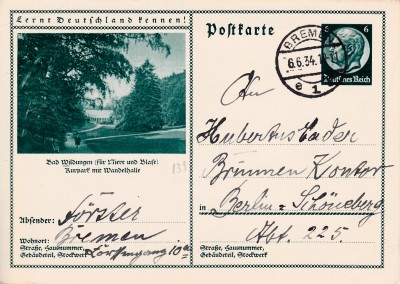 Lernt Deutschland kennen!
Bad Wildungen (für Niere und Blase)
Kurpark mit Wandelhalle
Absender: Förster
Wohnort: Bremen
Straße, Hausnummer,
Gebäudeteil, Stockwerk
Postkarte
BREMEN
6.6.34.
e 1
6
Deutsches Reich
An
Hubertus
Brunnen Kontor
in Berlin = Schöneberg
Abt. 225.
Straße, Hausnummer,
Gebäudeteil, Stockwerk